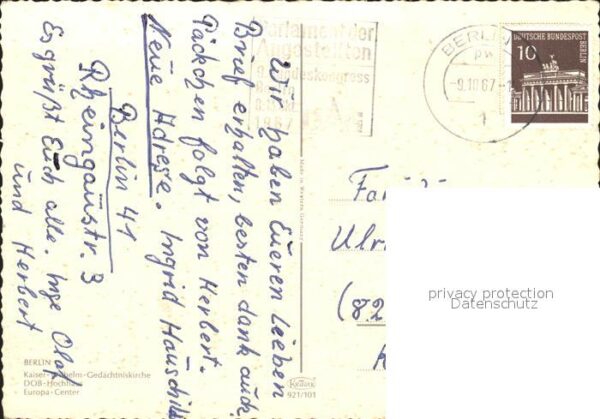 Wir haben Eueren lieben
Brief erhalten, besten dank auch,
Päckchen folgt von Herbert.
Neue Adresse. Ingrid Hauschild
Berlin 41
Rheingaustr. 3
Es grüßt Euch alle. Inge Olaf
und Herbert
Parlament der
Angestellten
9. Bundeskongress
Berlin
1967
BERLIN
9.10.67
1
10
DEUTSCHE BUNDESPOST
BERLIN
Made in Western Germany
Ulr
privacy protection
Datenschutz
BERLIN
Kaiser-Wilhelm-Gedächtniskirche
DOB-Hochhaus
Europa-Center
KRÜGER
921/101